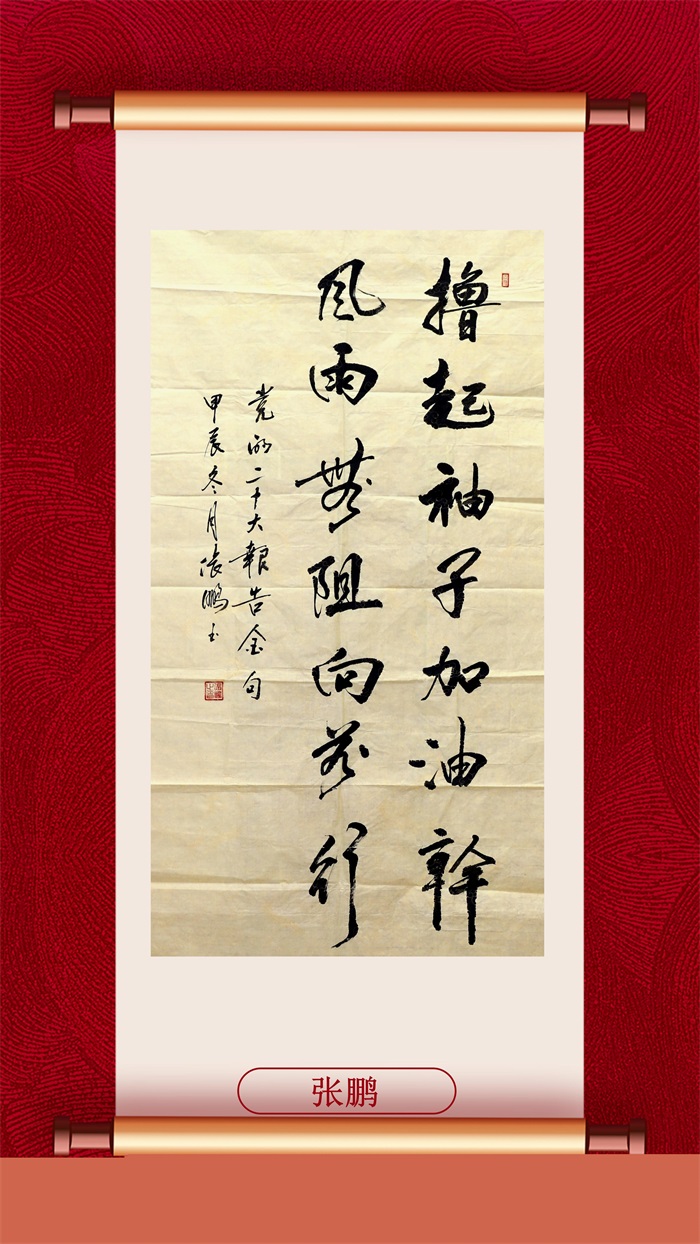 撸起袖子加油幹
風雨無阻向前行
党的二十大報告金句
甲辰冬月张鹏书
张鹏